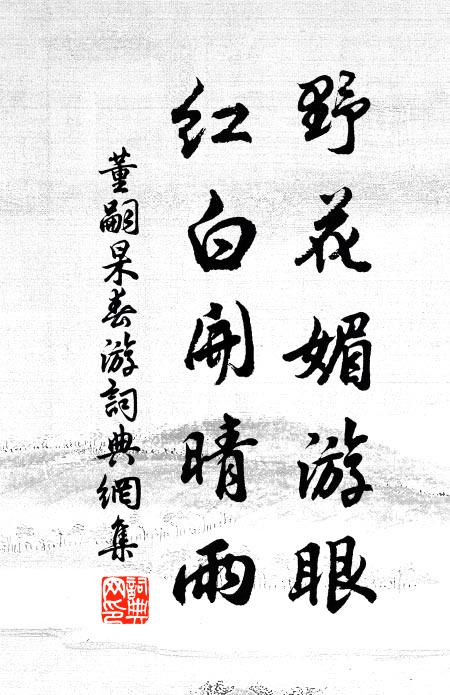 野花媚游眼
紅白開晴雨
董嗣杲春游詞典網集
詞典網印